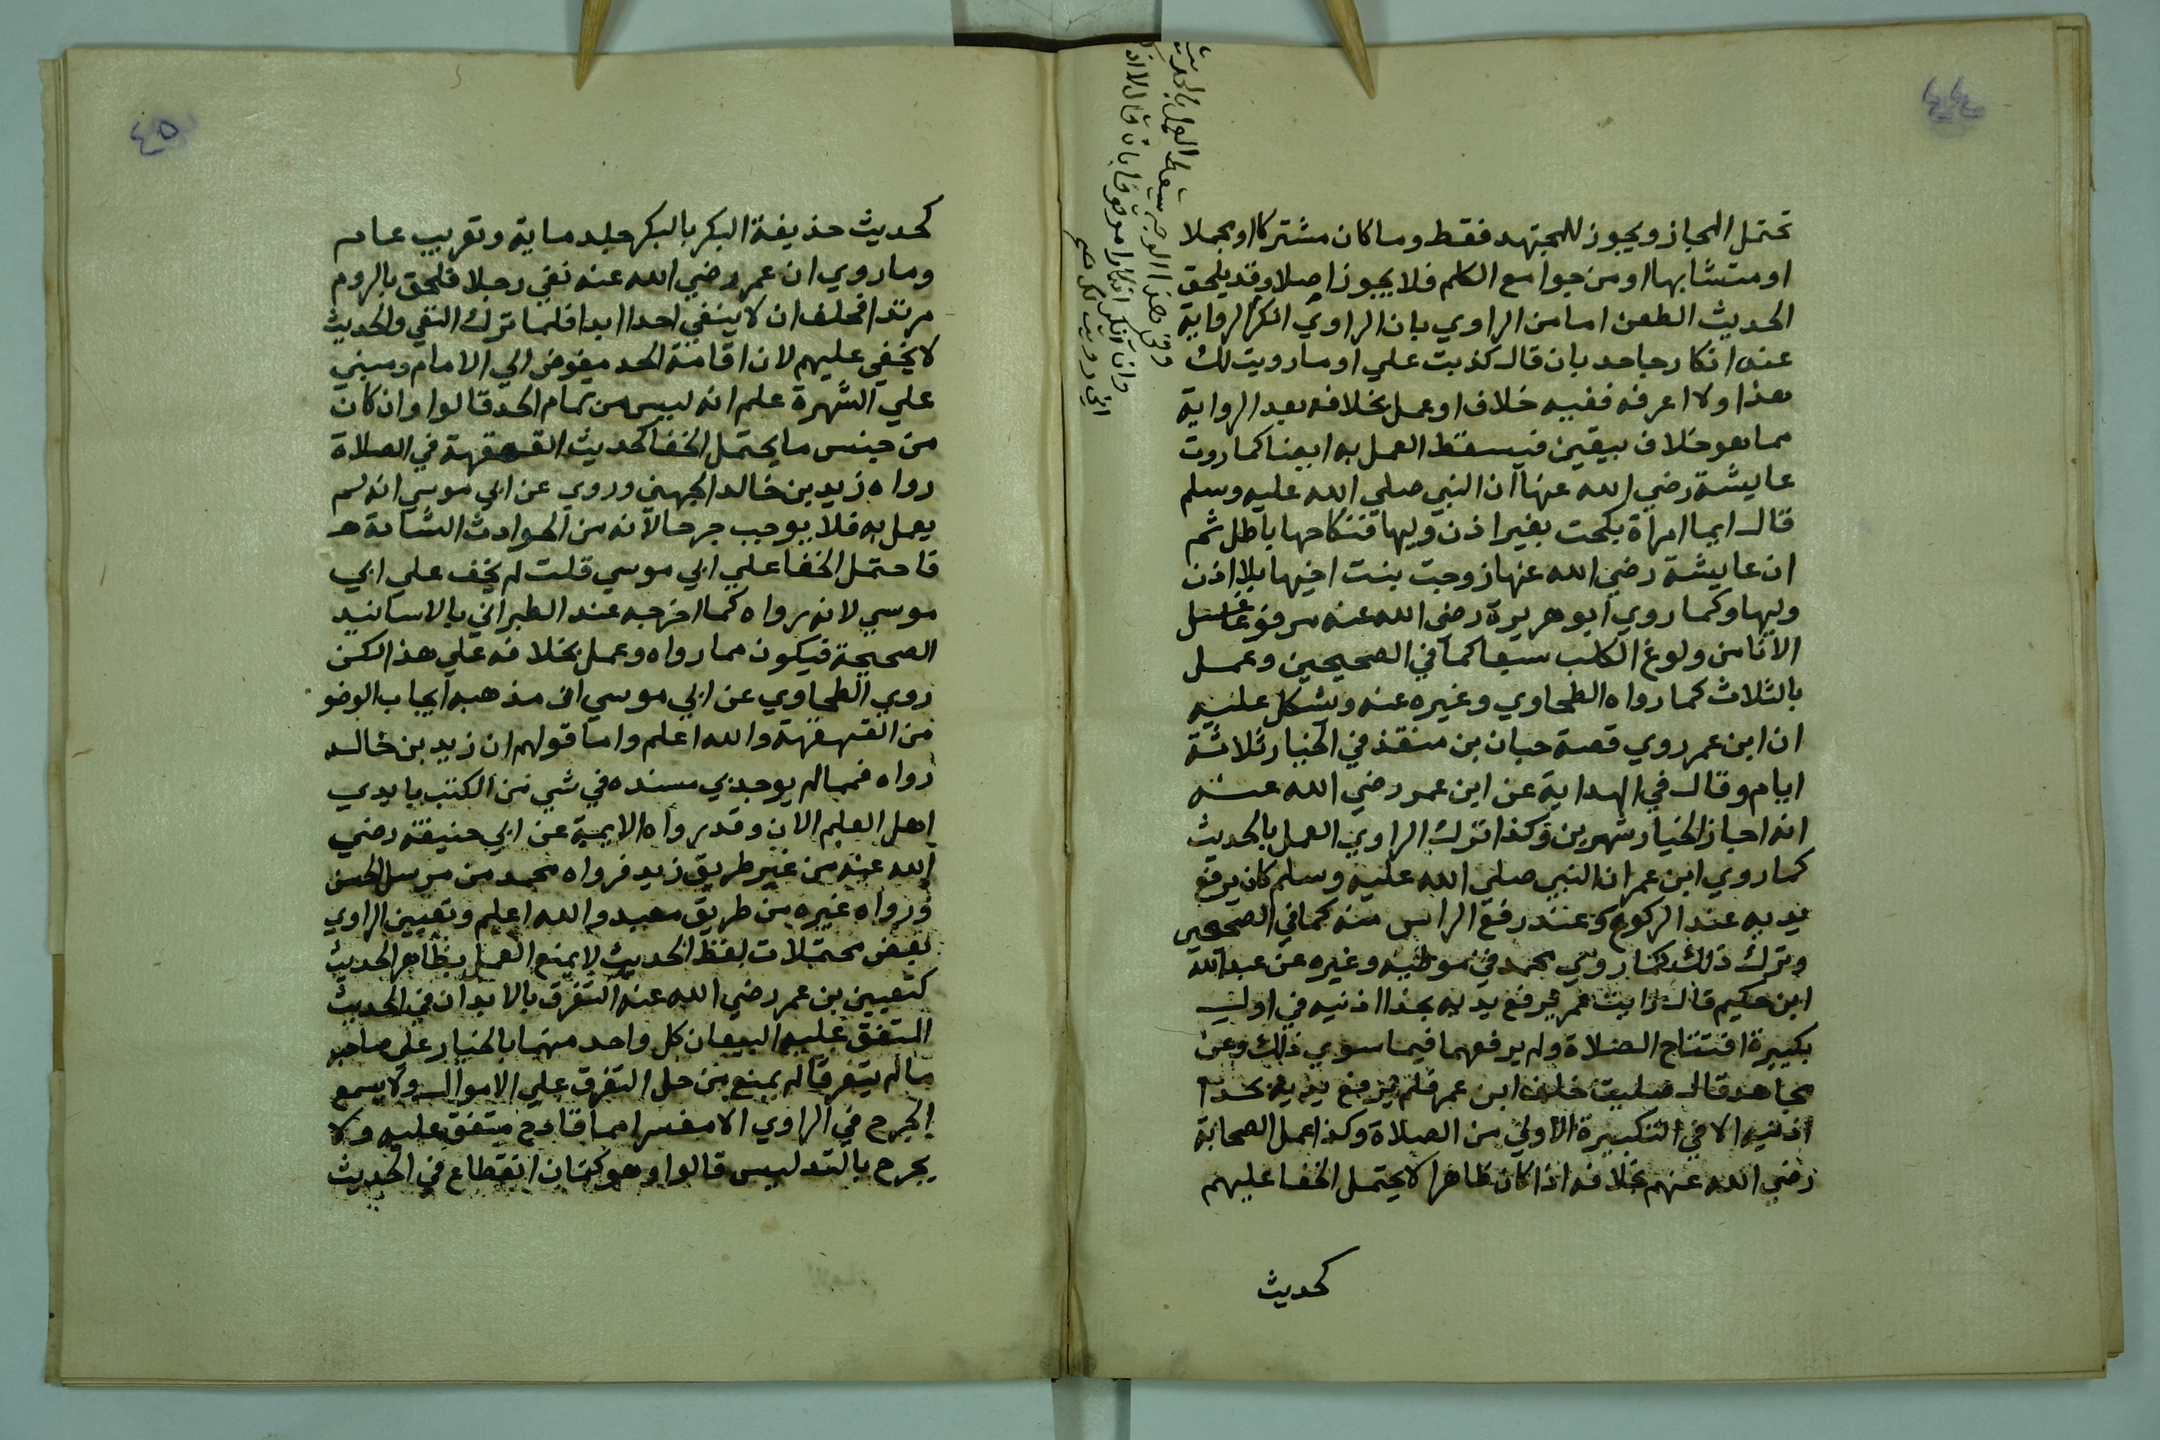 ٤٤
تحتمل المجاز ويجوز للمجتهد فقط وما كان مشتركا او مجملا
او متشابها او من جوامع الكلم فلا يجوز اصلا وقد يلحق
الحديث الطعن اما من الراوي بان الراوي انكر الرواية
عنه انكار جاحد بان قال كذبت علي او ما رويت لك
هذا ولا اعرفه ففيه خلاف او عمل بخلافه بعد الرواية
مما هو خلاف بيقين فيسقط العمل به ايضا كما روت
عايشة رضي الله عنها ان النبي صلي الله عليه وسلم
قال ايما امراة نكحت بغير اذن وليها فنكاحها باطل ثم
ان عايشة رضي الله عنها زوجت بنت اخيها بلا اذن
وليها وكما روي ابو هريرة رضي الله عنه مرفوعا غسل
الانا من ولوغ الكلب سبعا كما في الصحيحين وعمل
بالثلاث كما رواه الطحاوي وغيره عنه ويشكل عليه
ان ابن عمر روي قصة حبان بن منقذ في الخيار ثلاثة
ايام وقال في الهداية عن ابن عمر رضي الله عنه
انه اجاز الخيار شهرين وكذا ترك الراوي العمل بالحديث
كما روي ابن عمر ان النبي صلي الله عليه وسلم كان يرفع
يديه عند الركوع وعند رفع الراس منه كما في الصحيحين
وترك ذلك كما روي محمد في موطئه وغيره عن عبد الله
ابن حكيم قال رايت عمر يرفع يديه بحذا اذنيه في اول
بكبيرة افتتاح الصلاة ولم يرفعهما فيما سوي ذلك وعن
مجاهد قال صليت خلف ابن عمر فلم يرفع يديه حذا
اذنيه الا في التكبيرة الاولي من الصلاة وكذا عمل الصحابة
رضي الله عنهم بخلافه اذا كان ظاهرا لا يحتمل الخفا عليهم
كحديث
وفي هذا الوجه سيسقط العمل بالحديث
وان انكر انكارا موقوفا بان قال لا اذكر
اني رويت لك صح
٤٥
كحديث حذيفة البكر بالبكر جلد ماية وتغريب عام
وما روي ان عمر رضي الله عنه نفي رجلا فلحق بالروم
مرتدا فحلف ان لا ينفي احدا ابدا فلما ترك النفي والحديث
لا يخفي عليهم لان اقامة الحد مفوض الي الامام ومبني
علي الشهرة علم انه ليس من تمام الحد قالوا وان كان
من جنس ما يحتمل الخفا كحديث القهقهة في الصلاة
رواه زيد بن خالد الجهني وروي عن ابي موسي انه لم
يعمل به فلا يوجب جرحا لانه من الحوادث النادرة
فاحتمل الخفا علي ابي موسي قلت لم يخف علي ابي
موسي لانه رواه كما اخرجه عند الطبراني بالاسانيد
الصحيحة فيكون مما رواه وعمل بخلافه علي هذا لكن
روي الطحاوي عن ابي موسي ان مذهبه ايجاب الوضو
من القهقهة والله اعلم واما قولهم ان زيد بن خالد
رواه فمما لم يوجد بي مسنده في شي من الكتب بايدي
اهل العلم الان وقد رواه الايمة عن ابي حنيفة رضي
الله عنه من غير طريق زيد فرواه محمد من مرسل الحسن
ورواه غيره من طريق معبد والله اعلم وتعيين الراوي
بعض محتملات لفظ الحديث لا يمنع العمل بظاهر الحديث
كتعيين بن عمر رضي الله عنه التفرق بالابدان في الحديث
المتفق عليه البيعان كل واحد منهما بالخيار علي صاحبه
ما لم يتفرقا لم يمنع من حل التفرق علي الاموال ولا يسمع
الجرح في الراوي الا مفسرا مما قادح متفق عليه ولا
يجرح بالتدليس قالوا وهو كتمان انقطاع في الحديث